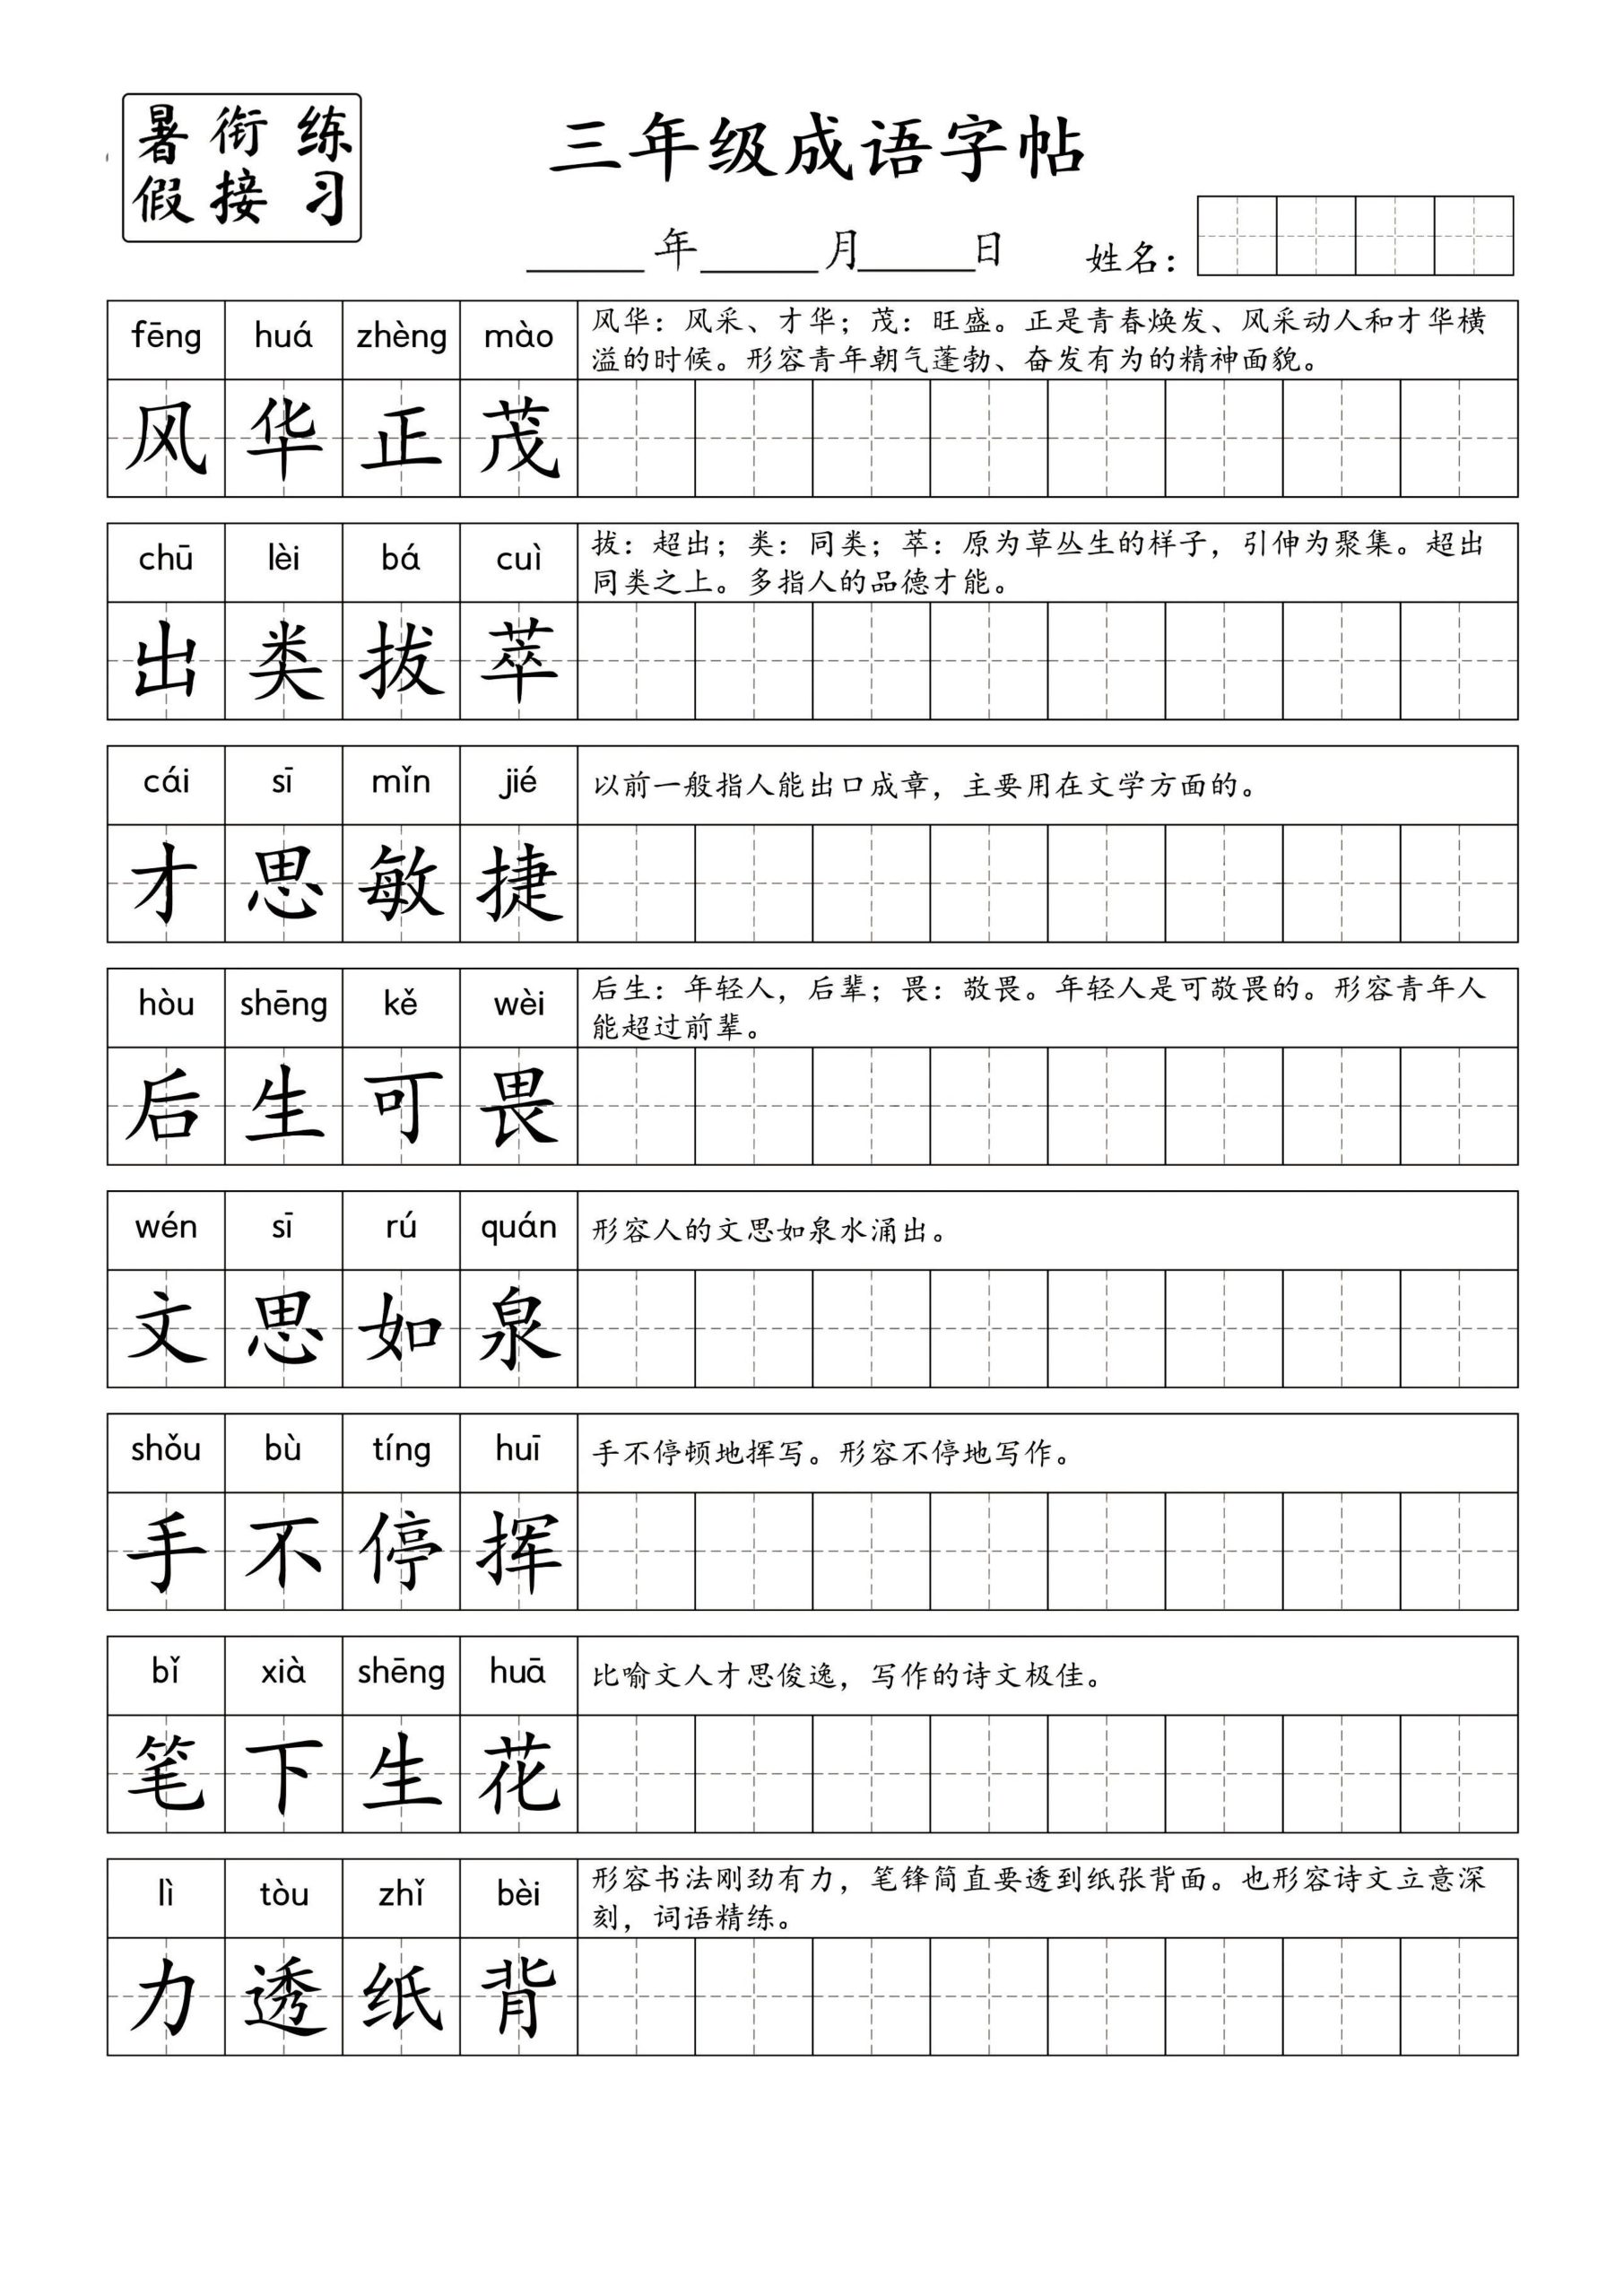 暑 衔 练
假 接 习
三年级成语字帖
年 月 日 姓名：
fēng huá zhèng mào
风华：风采、才华；茂：旺盛。正是青春焕发、风采动人和才华横
溢的时候。形容青年朝气蓬勃、奋发有为的精神面貌。
风 华 正 茂
chū lèi bá cuì
拔：超出；类：同类；萃：原为草丛生的样子，引伸为聚集。超出
同类之上。多指人的品德才能。
出 类 拔 萃
cái sī mǐn jié
以前一般指人能出口成章，主要用在文学方面的。
才 思 敏 捷
hòu shēng kě wèi
后生：年轻人，后辈；畏：敬畏。年轻人是可敬畏的。形容青年人
能超过前辈。
后 生 可 畏
wén sī rú quán
形容人的文思如泉水涌出。
文 思 如 泉
shǒu bù tíng huī
手不停顿地挥写。形容不停地写作。
手 不 停 挥
bǐ xià shēng huā
比喻文人才思俊逸，写作的诗文极佳。
笔 下 生 花
lì tòu zhǐ bèi
形容书法刚劲有力，笔锋简直要透到纸张背面。也形容诗文立意深
刻，词语精练。
力 透 纸 背